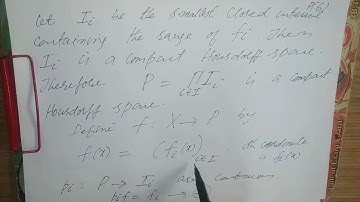 Let Ii be the smallest closed interval
containing the range of fi. Then
Ii is a compact Housdorff space.
Therefore P = ∏ Ii is a compact
i∈I
Housdorff space.
Define f: X → P by
f(x) = (fi(x))i∈I, ith coordinate
is fi(x)
pi: P → Ii is continuous
pi f = fi →